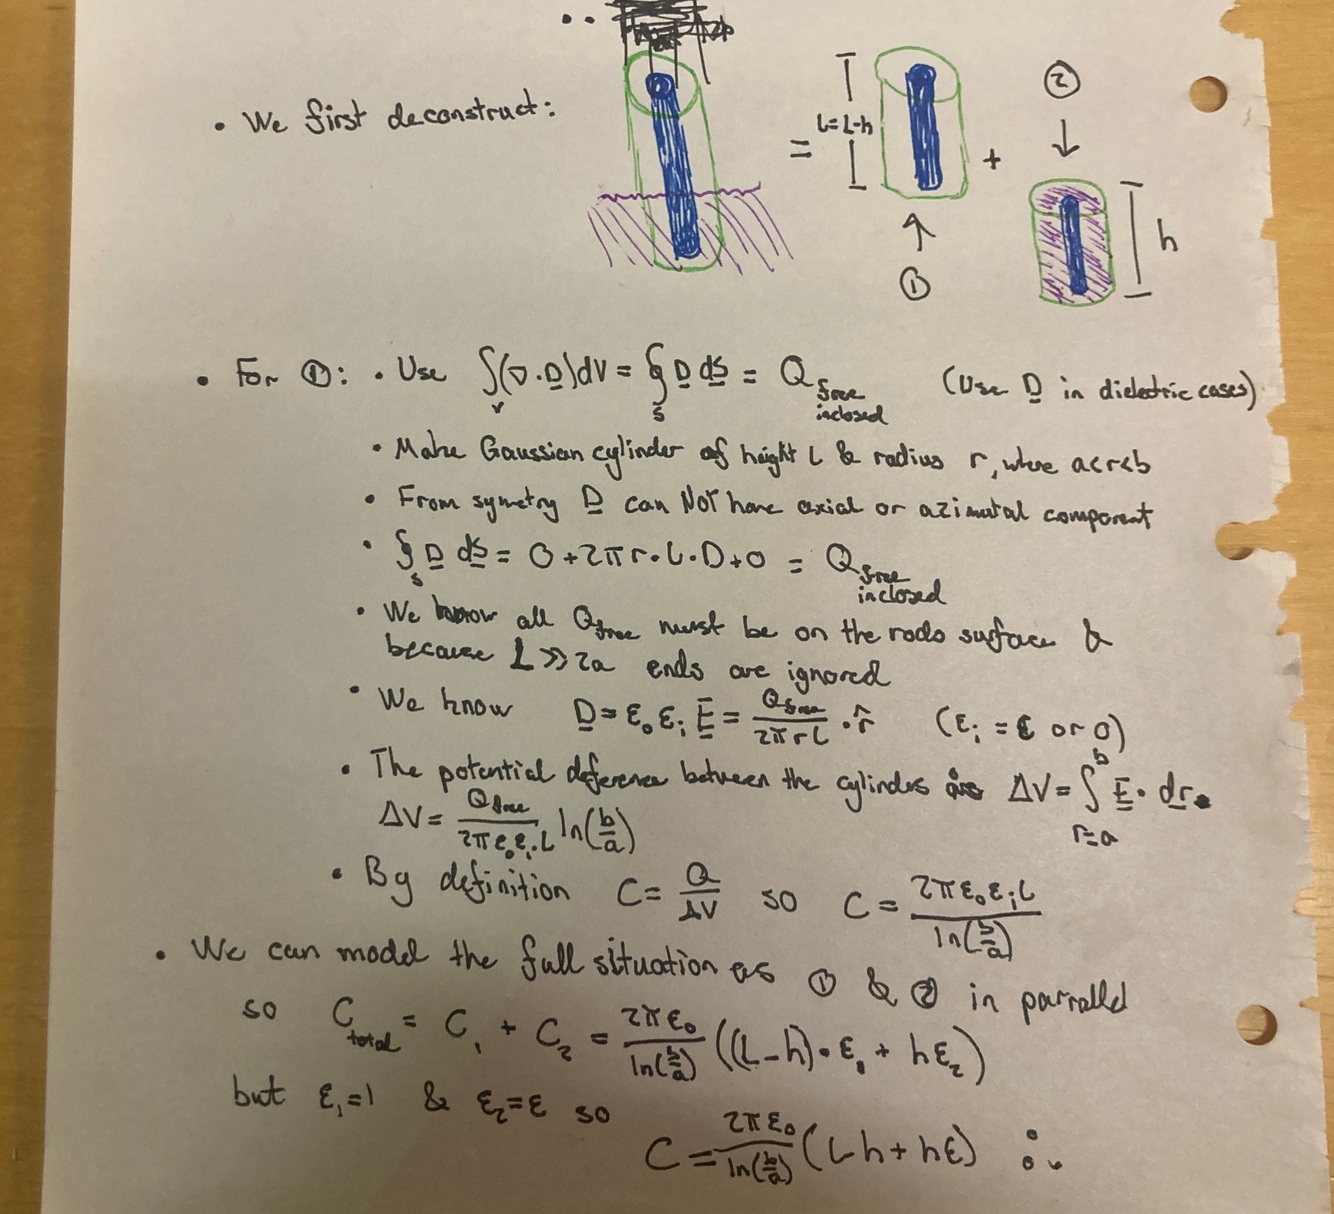 • We first deconstruct:
= l=L-h + ② h
①
• For ①: • Use ∫(∇·D)dV = ∮D dS = Q free inclosed (Use D in dielectric cases)
V S
• Make Gaussian cylinder of height l & radius r, where a<r<b
• From symetry D can NOT have axial or azimutal component
• ∮D dS = 0 + 2πr·l·D + 0 = Q free inclosed
S
• We know all Qfree must be on the rods surface &
because L >> 2a ends are ignored
• We know D = ε₀εᵢE = Qfree/2πrl · r̂ (εᵢ = ε or 0)
• The potential deference between the cylindrs is ΔV = ∫ᵇᵣ₌ₐ E · dr
ΔV = Qfree/2πε₀εᵢl ln(b/a)
• By definition C = Q/ΔV so C = 2πε₀εᵢl/ln(b/a)
• We can model the full situation as ① & ② in parralel
so C total = C₁ + C₂ = 2πε₀/ln(b/a) ((L-h)·ε₁ + hε₂)
but ε₁=1 & ε₂=ε so
C = 2πε₀/ln(b/a) (L h + hε)